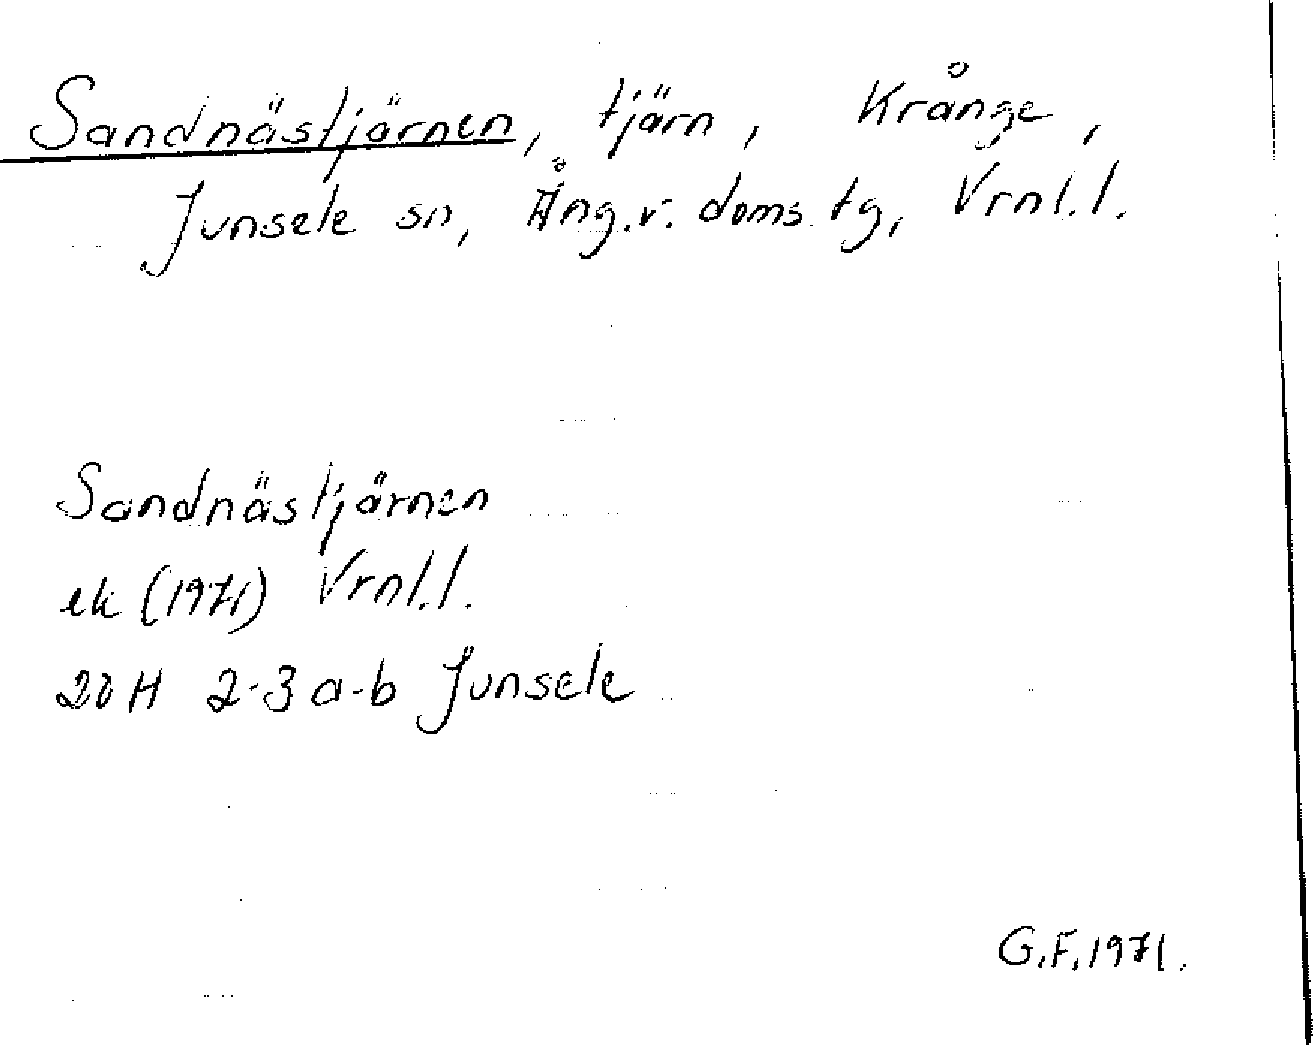 Sandnästjärnen, tjärn, Krånge,
Junsele sn, Ång.v. doms.tg, Vrnl.l.
Sandnästjärnen
ek (1971) Vrnl.l.
20 H 2-3 a-b Junsele
G.F. 1971.